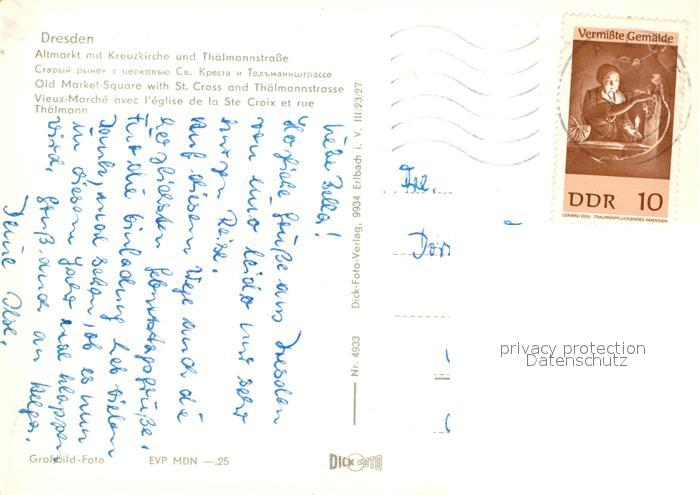 Dresden
Altmarkt mit Kreuzkirche und Thälmannstraße
Старый рынок с церковью Св. Креста и Тельманнштрассе
Old Market-Square with St. Cross and Thälmannstrasse
Vieux-Marché avec l'église de la Ste Croix et rue
Thälmann
Liebe Bella!
Herzliche Grüße aus Dresden
von einer leider nur sehr
kurzen Reise.
Auf diesem Wege auch die
herzlichsten Geburtstagsgrüße.
Für die Einladung hab vielen
Dank, mal sehen, ob es nun
in diesem Jahr mal klappen
wird. Gruß auch an Helga.
Deine Ilse.
Großbild-Foto EVP MDN —.25
Nr. 4933 Dick-Foto-Verlag, 9934 Erlbach i. V. III/23/27
DICK FOTO
Vermißte Gemälde
DDR 10
GERARD DOU TRAUBENPFLÜCKENDES MÄDCHEN
privacy protection
Datenschutz